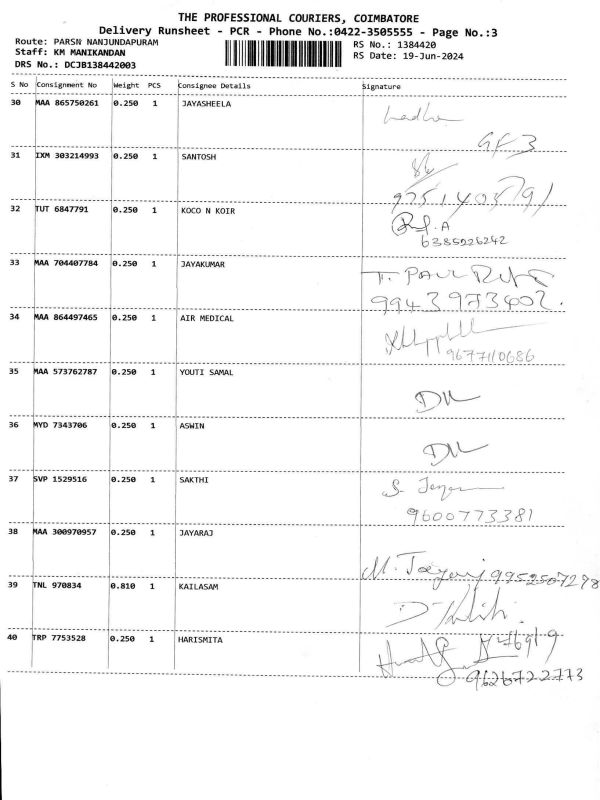 THE PROFESSIONAL COURIERS, COIMBATORE
Delivery Runsheet - PCR - Phone No.:0422-3505555 - Page No.:3
Route: PARSN NANJUNDAPURAM
RS No.: 1384420
Staff: KM MANIKANDAN
RS Date: 19-Jun-2024
DRS No.: DCJB138442003
S No Consignment No Weight PCS Consignee Details Signature
30 MAA 865750261 0.250 1 JAYASHEELA
GF3
31 IXM 303214993 0.250 1 SANTOSH
9751403791
32 TUT 6847791 0.250 1 KOCO N KOIR
6385026242
33 MAA 704407784 0.250 1 JAYAKUMAR
T. PAUL
9943973402.
34 MAA 864497465 0.250 1 AIR MEDICAL
9677110686
35 MAA 573762787 0.250 1 YOUTI SAMAL
36 MYD 7343706 0.250 1 ASWIN
37 SVP 1529516 0.250 1 SAKTHI
9600773381
38 MAA 300970957 0.250 1 JAYARAJ
M. 9952507278
39 TNL 970834 0.810 1 KAILASAM
40 TRP 7753528 0.250 1 HARISMITA
9626722773